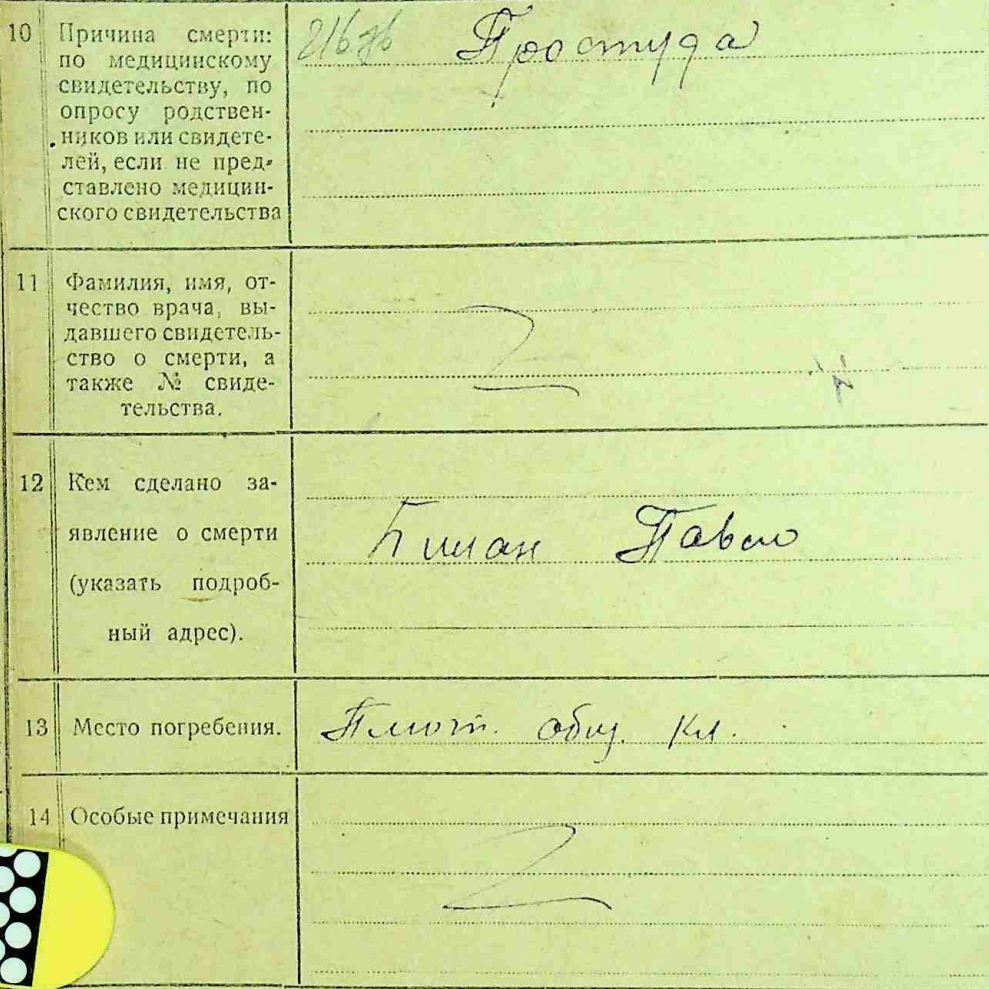 10 Причина смерти: Простуда
по медицинскому
свидетельству, по
опросу родствен-
ников или свидете-
лей, если не пред-
ставлено медицин-
ского свидетельства
11 Фамилия, имя, от-
чество врача, вы-
давшего свидетель-
ство о смерти, а
также № свиде-
тельства.
12 Кем сделано за-
явление о смерти
(указать подроб-
ный адрес).
Павло
13 Место погребения. общ. кл.
14 Особые примечания